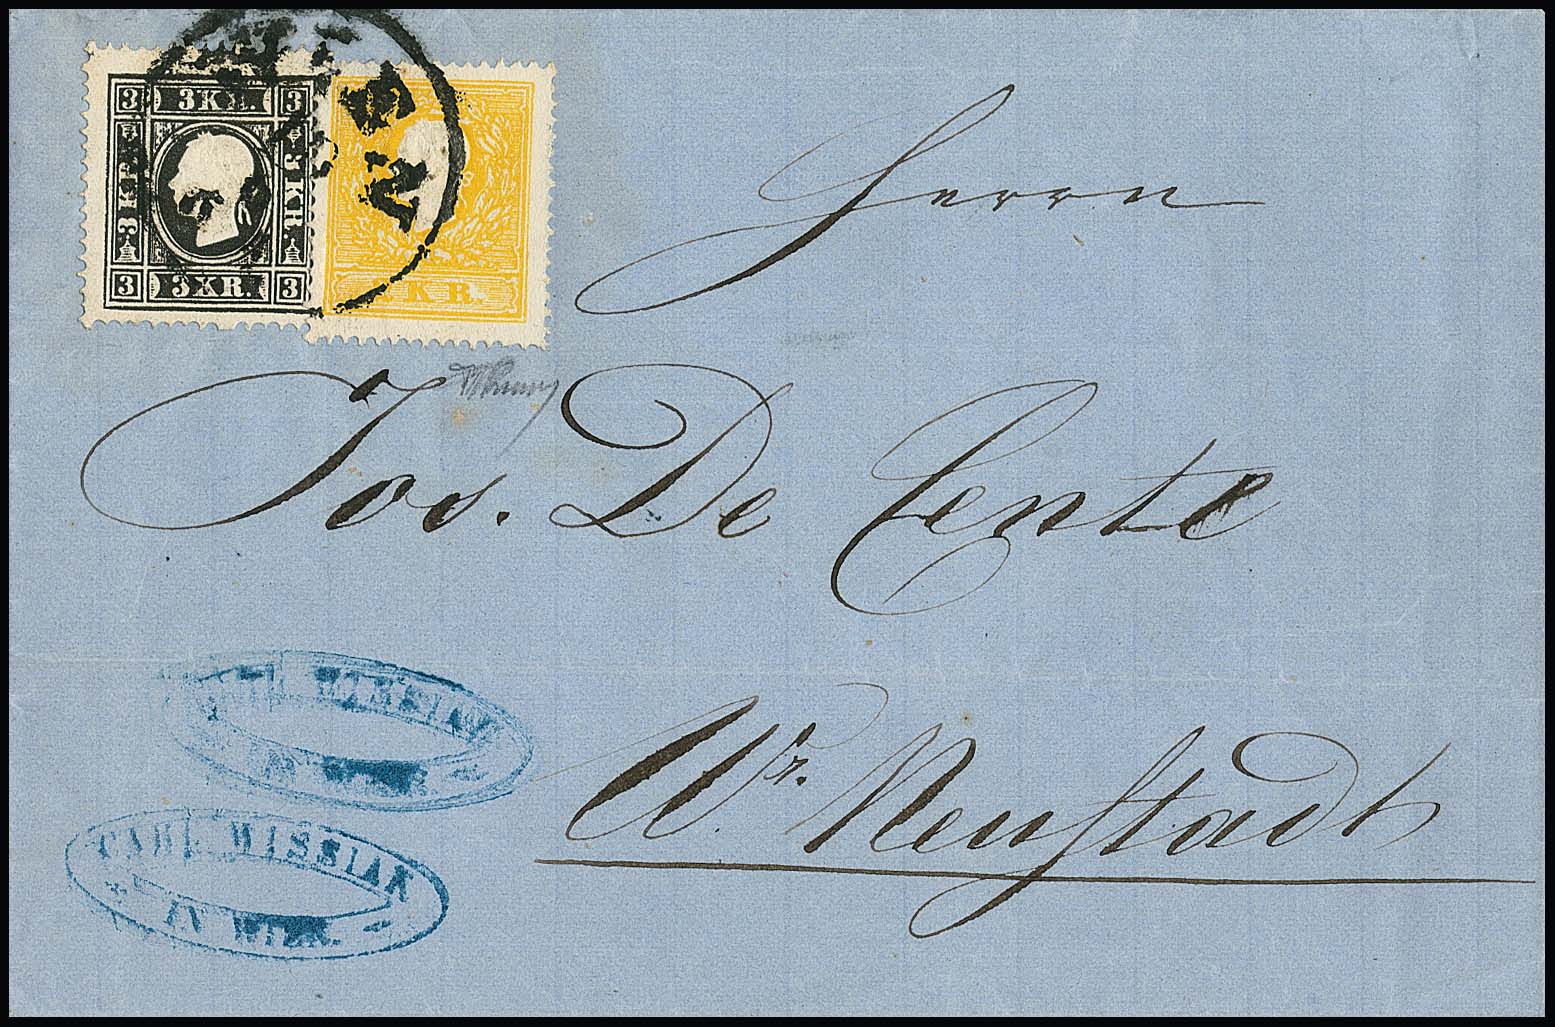 3 3 KR. 3
3 KR. 3 KR.
3 3 KR. 3
KR.
Herrn
Jos. De Cente
Wr. Neustadt
CARL WISSIAK
IN WIEN.
CARL WISSIAK
IN WIEN.